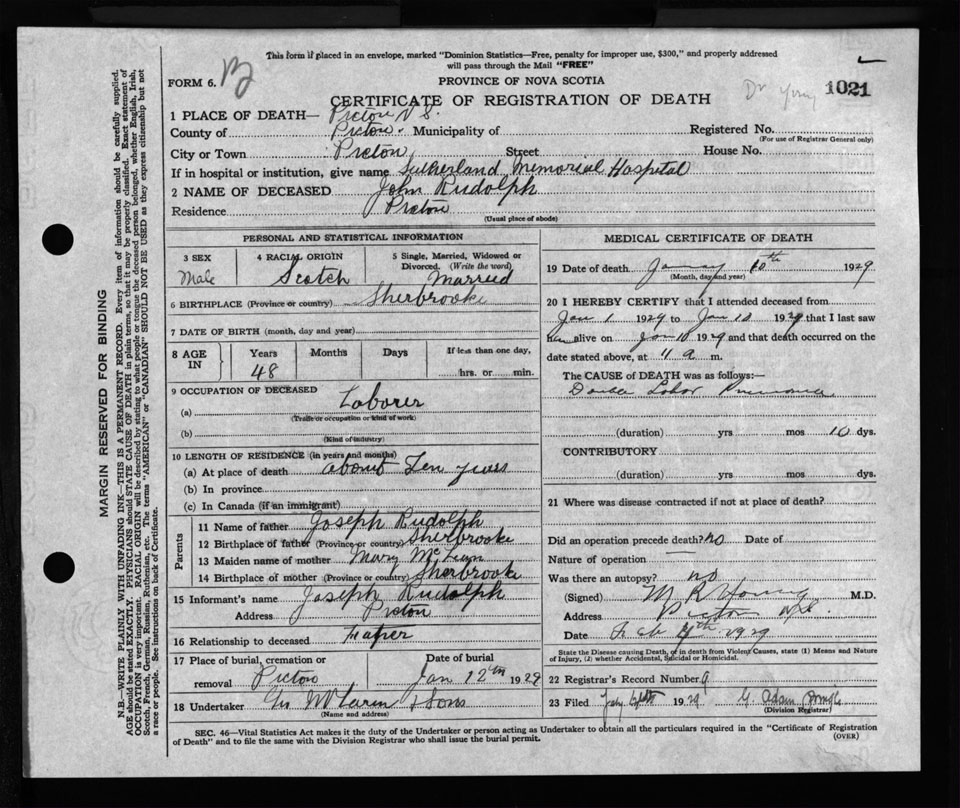 This form if placed in an envelope, marked "Dominion Statistics—Free, penalty for improper use, $300," and properly addressed
will pass through the Mail "FREE"
FORM 6.
PROVINCE OF NOVA SCOTIA
1021
CERTIFICATE OF REGISTRATION OF DEATH
1 PLACE OF DEATH— Pictou N S.
County of Pictou. Municipality of Registered No.
(For use of Registrar General only)
City or Town Pictou Street House No.
If in hospital or institution, give name Sutherland Memorial Hospital
2 NAME OF DECEASED John Rudolph
Residence Pictou
(Usual place of abode)
PERSONAL AND STATISTICAL INFORMATION
3 SEX 4 RACIAL ORIGIN 5 Single, Married, Widowed or
Divorced. (Write the word)
Male Scotch Married
6 BIRTHPLACE (Province or country) Sherbrooke
7 DATE OF BIRTH (month, day and year)
8 AGE IN Years Months Days If less than one day,
48 hrs. or min.
9 OCCUPATION OF DECEASED
(a) Laborer
(Trade or occupation or kind of work)
(b)
(Kind of industry)
10 LENGTH OF RESIDENCE (in years and months)
(a) At place of death about Ten years
(b) In province
(c) In Canada (if an immigrant)
Parents
11 Name of father Joseph Rudolph
12 Birthplace of father (Province or country) Sherbrooke
13 Maiden name of mother Mary
14 Birthplace of mother (Province or country) Sherbrooke
15 Informant's name Joseph Rudolph
Address Pictou
16 Relationship to deceased
17 Place of burial, cremation or Date of burial
removal Pictou Jan 12th 1929
18 Undertaker Geo McLaren & Sons
(Name and address)
MEDICAL CERTIFICATE OF DEATH
19 Date of death 10th 1929
(Month, day and year)
20 I HEREBY CERTIFY that I attended deceased from
Jan 1 1929 to Jan 10 1929 that I last saw
him alive on Jan 10 1929 and that death occurred on the
date stated above, at 11 a m.
The CAUSE of DEATH was as follows:—
Double Lobar Pneumonia
(duration) yrs mos 10 dys.
CONTRIBUTORY
(duration) yrs mos dys.
21 Where was disease contracted if not at place of death?
Did an operation precede death? no Date of
Nature of operation —
Was there an autopsy? no
(Signed) M R Young M.D.
Address Pictou NS
Date Feb 1929
State the Disease causing Death, or in death from Violent Causes, state (1) Means and Nature
of Injury, (2) whether Accidental, Suicidal or Homicidal.
22 Registrar's Record Number 9
23 Filed 1929 G. Adam
(Division Registrar)
SEC. 46—Vital Statistics Act makes it the duty of the Undertaker or person acting as Undertaker to obtain all the particulars required in the "Certificate of Registration
of Death" and to file the same with the Division Registrar who shall issue the burial permit.
(OVER)
MARGIN RESERVED FOR BINDING
N.B.—WRITE PLAINLY WITH UNFADING INK—THIS IS A PERMANENT RECORD. Every item of information should be carefully supplied.
AGE should be stated EXACTLY. PHYSICIANS should STATE CAUSE OF DEATH in plain terms, so that it may be properly classified. Exact statement of
OCCUPATION is very important. RACIAL ORIGIN will be described by stating to what people or tongue the deceased person belonged, whether English, Irish,
Scotch, French, German, Russian, Ruthenian, etc. The terms "AMERICAN" or "CANADIAN" SHOULD NOT BE USED as they express citizenship but not
a race or people. See instructions on back of Certificate.